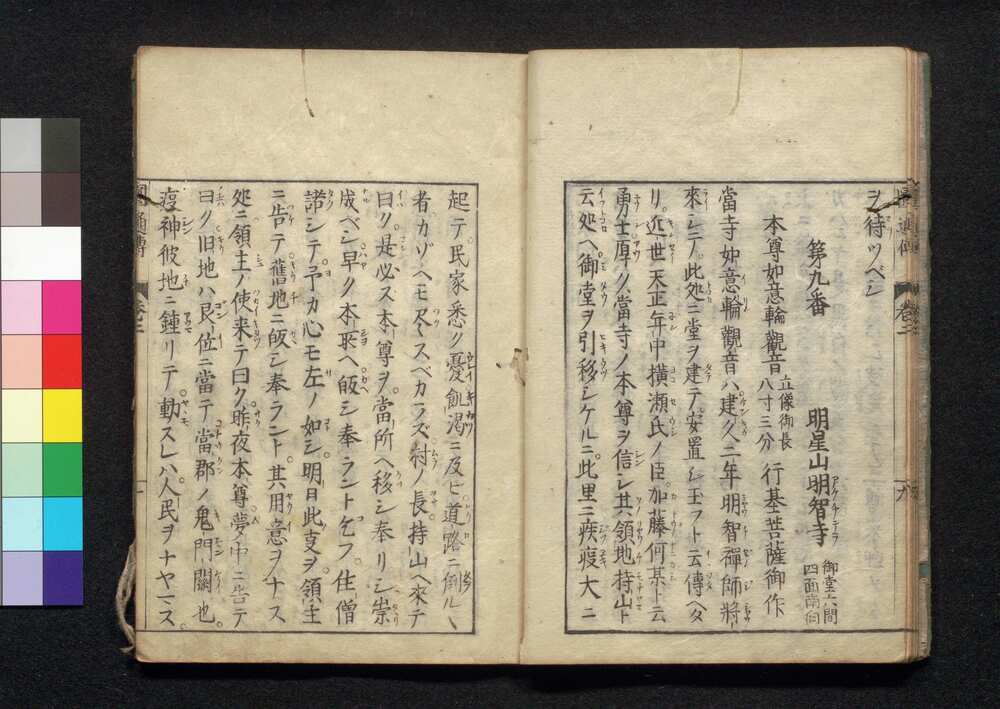 ヲ待ツベシ
第九番 明星山明智寺 御堂六間四面南向
本尊如意輪觀音 立像御長八寸三分 行基菩薩御作
當寺如意輪觀音ハ建久二年明智禪師將
來シテ此処ニ堂ヲ建テ安置シ玉フト云傳ヘタ
リ近世天正年中横瀬氏ノ臣加藤何某ト云
勇士厚ク當寺ノ本尊ヲ信シ其領地持山ト
云処ヘ御堂ヲ引移シケルニ此里ニ疾疫大ニ
起テ民家悉ク憂飢渇ニ及ビ道路ニ倒ルヽ
者カゾヘモ尽スベカラズ村ノ長持山ヘ來テ
曰ク是必ス本尊ヲ當所ヘ移シ奉リシ崇
成ベシ早ク本所ヘ皈シ奉ラント乞フ住僧
諾シテ予カ心モ左ノ如シ明日此支ヲ領主
ニ告テ舊地ニ皈シ奉ラント其用意ヲナス
処ニ領主ノ使来テ曰ク昨夜本尊夢中ニ告テ
曰ク旧地ハ艮ノ位ニ當テ當郡ノ鬼門關也
疫神彼地ニ鍾リテ動スレハ人民ヲナヤマス
圓通傳 卷三